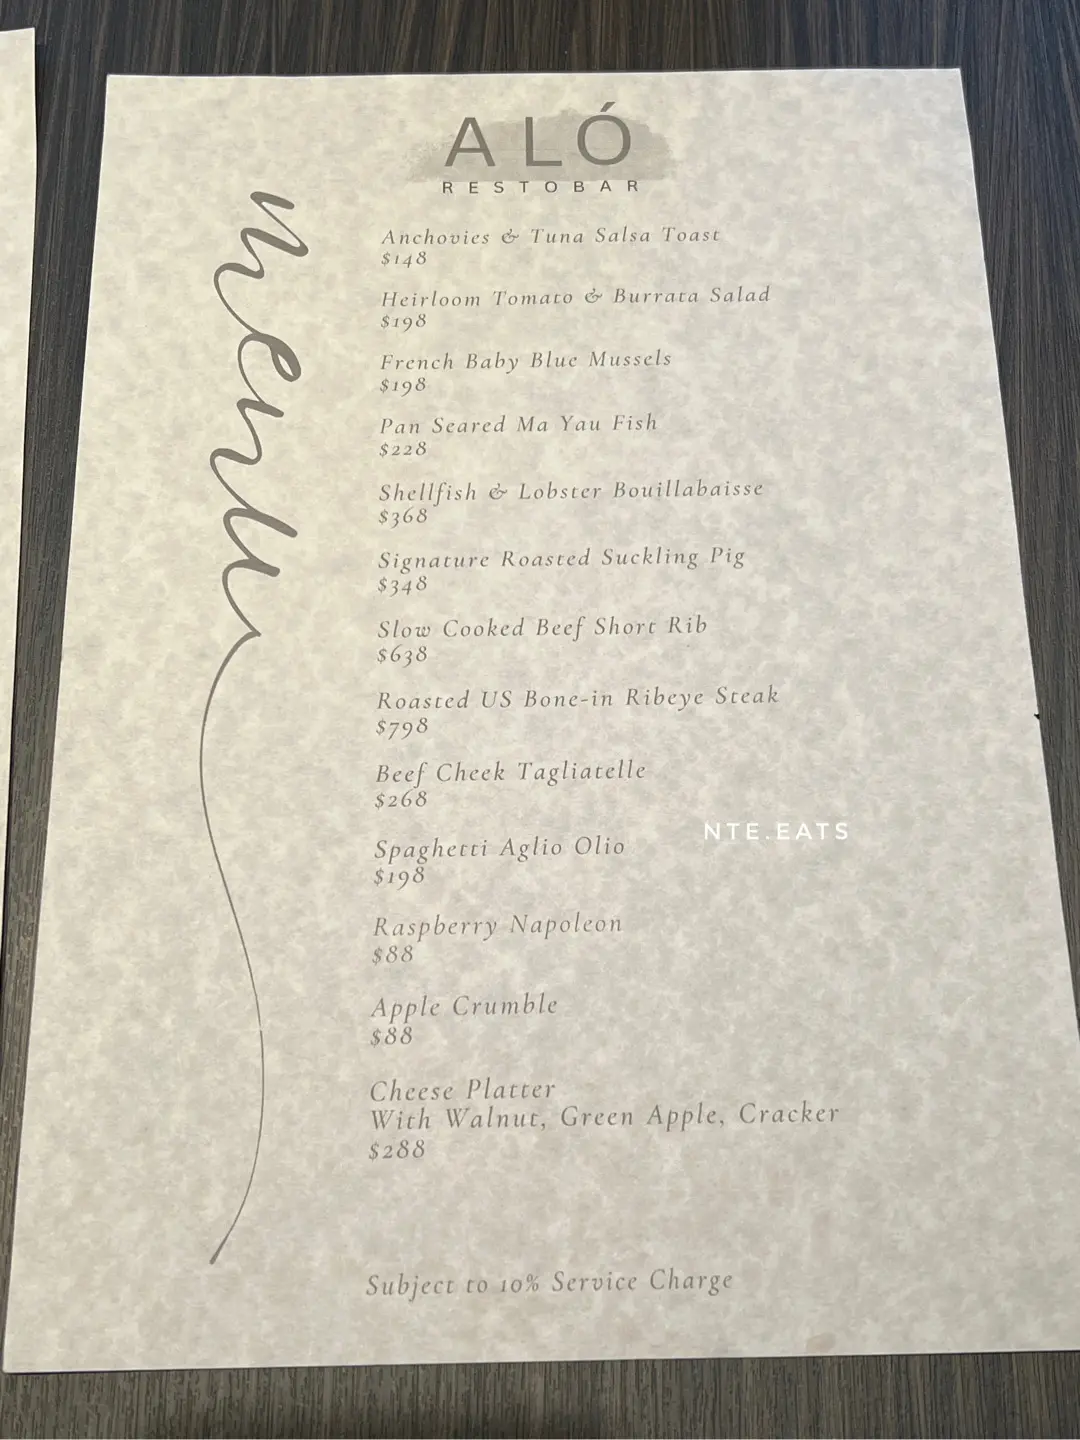 ALÓ
RESTOBAR
menu
Anchovies & Tuna Salsa Toast
$148
Heirloom Tomato & Burrata Salad
$198
French Baby Blue Mussels
$198
Pan Seared Ma Yau Fish
$228
Shellfish & Lobster Bouillabaisse
$368
Signature Roasted Suckling Pig
$348
Slow Cooked Beef Short Rib
$638
Roasted US Bone-in Ribeye Steak
$798
Beef Cheek Tagliatelle
$268
NTE.EATS
Spaghetti Aglio Olio
$198
Raspberry Napoleon
$88
Apple Crumble
$88
Cheese Platter
With Walnut, Green Apple, Cracker
$288
Subject to 10% Service Charge